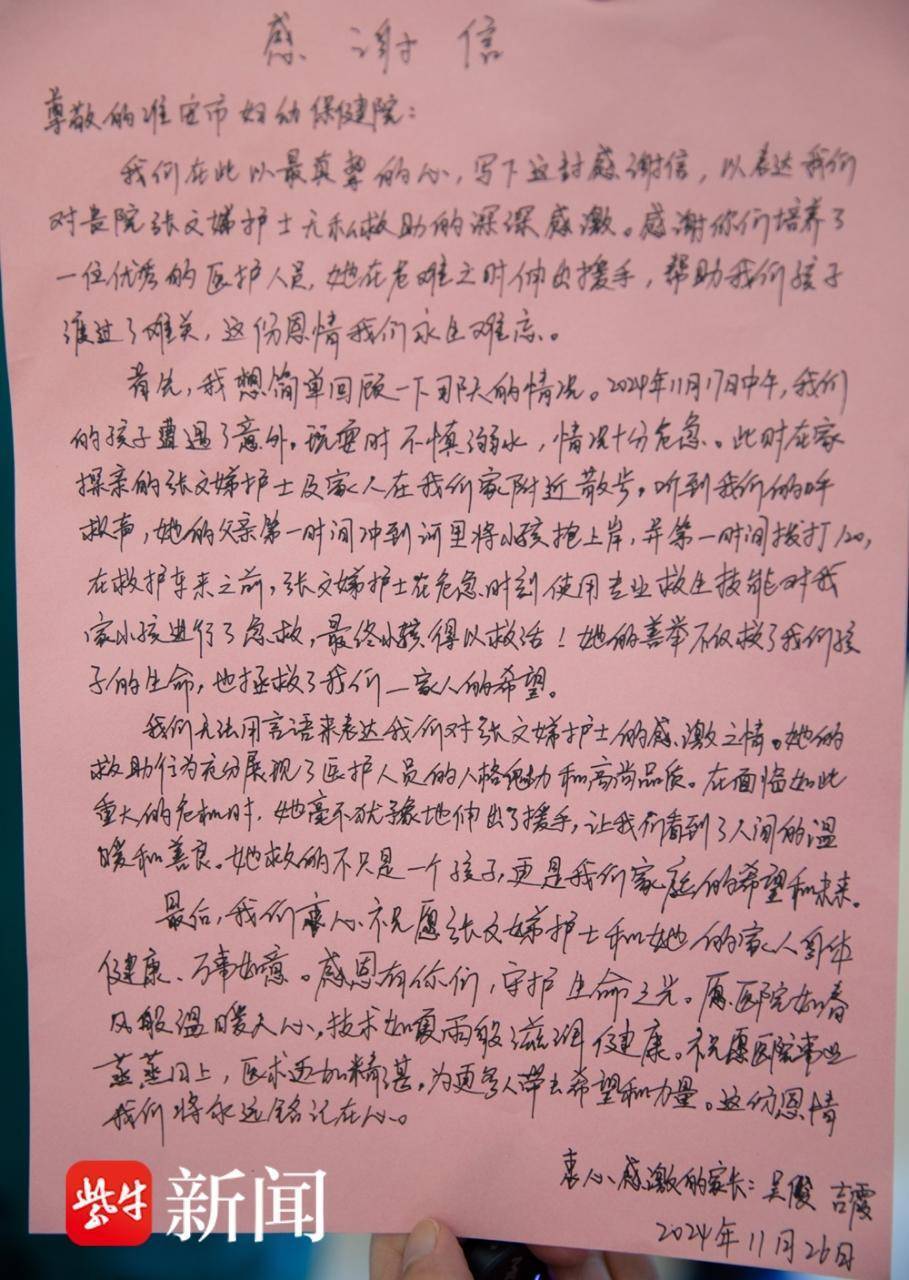 感谢信
尊敬的淮安市妇幼保健院：
我们在此以最真挚的心，写下这封感谢信，以表达我们
对贵院张文娣护士无私救助的深深感激。感谢你们培养了
一位优秀的医护人员，她在危难之时伸出援手，帮助我们孩子
渡过了难关，这份恩情我们永生难忘。
首先，我想简单回顾一下那天的情况。2024年11月17日中午，我们
的孩子遭遇了意外。玩耍时不慎溺水，情况十分危急。此时在家
探亲的张文娣护士及家人在我们家附近散步。听到我们的呼
救声，她的父亲第一时间冲到河里将小孩抱上岸，并第一时间拨打120，
在救护车来之前，张文娣护士在危急时刻使用专业救生技能对我
家小孩进行了急救，最终小孩得以救活！她的善举不仅救了我们孩
子的生命，也拯救了我们一家人的希望。
我们无法用言语来表达我们对张文娣护士的感激之情。她的
救助行为充分展现了医护人员的人格魅力和高尚品质。在面临如此
重大的危机时，她毫不犹豫地伸出了援手，让我们看到了人间的温
暖和善良。她救的不只是一个孩子，更是我们家庭的希望和未来。
最后，我们衷心祝愿张文娣护士和她的家人身体
健康、万事如意。感恩有你们，守护生命之光。愿医院如春
风般温暖人心，技术如夏雨般滋润健康。祝愿医院事业
蒸蒸日上，医术更加精湛，为更多人带去希望和力量。这份恩情
我们将永远铭记在心。
衷心感激的家长：吴俊 吉霞
2024年11月26日
紫牛新闻